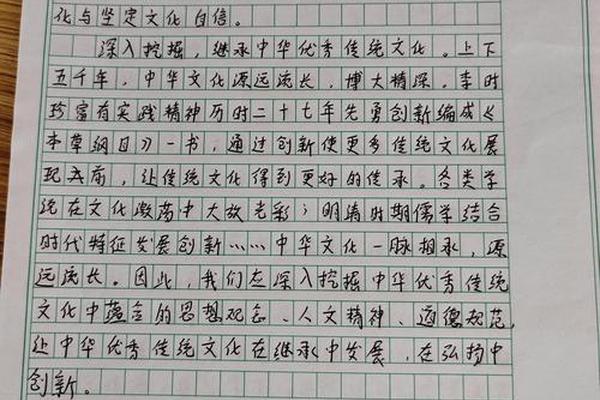 化与坚定文化自信。
深入挖掘，继承中华优秀传统文化。上下
五千年，中华文化源远流长，博大精深。李时
珍富有实践精神历时二十七年先勇创新编成《
本草纲目》一书，通过创新使更多传统文化展
现在前，让传统文化得到更好的传承。各类学
统在文化激荡中大放光彩；明清时期儒学结合
时代特征发展创新……中华文化一脉相承，源
远流长。因此，我们在深入挖掘中华优秀传统
文化中蕴含的思想观念、人文精神、道德规范，
让中华优秀传统文化在继承中发展，在弘扬中
创新。